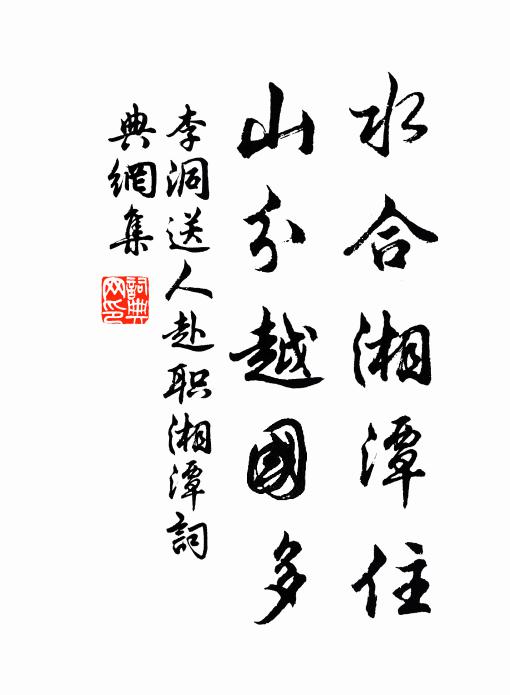 水合湘潭住
山分越國多
李洞送人赴职湘潭詞
典網集
詞典
网印